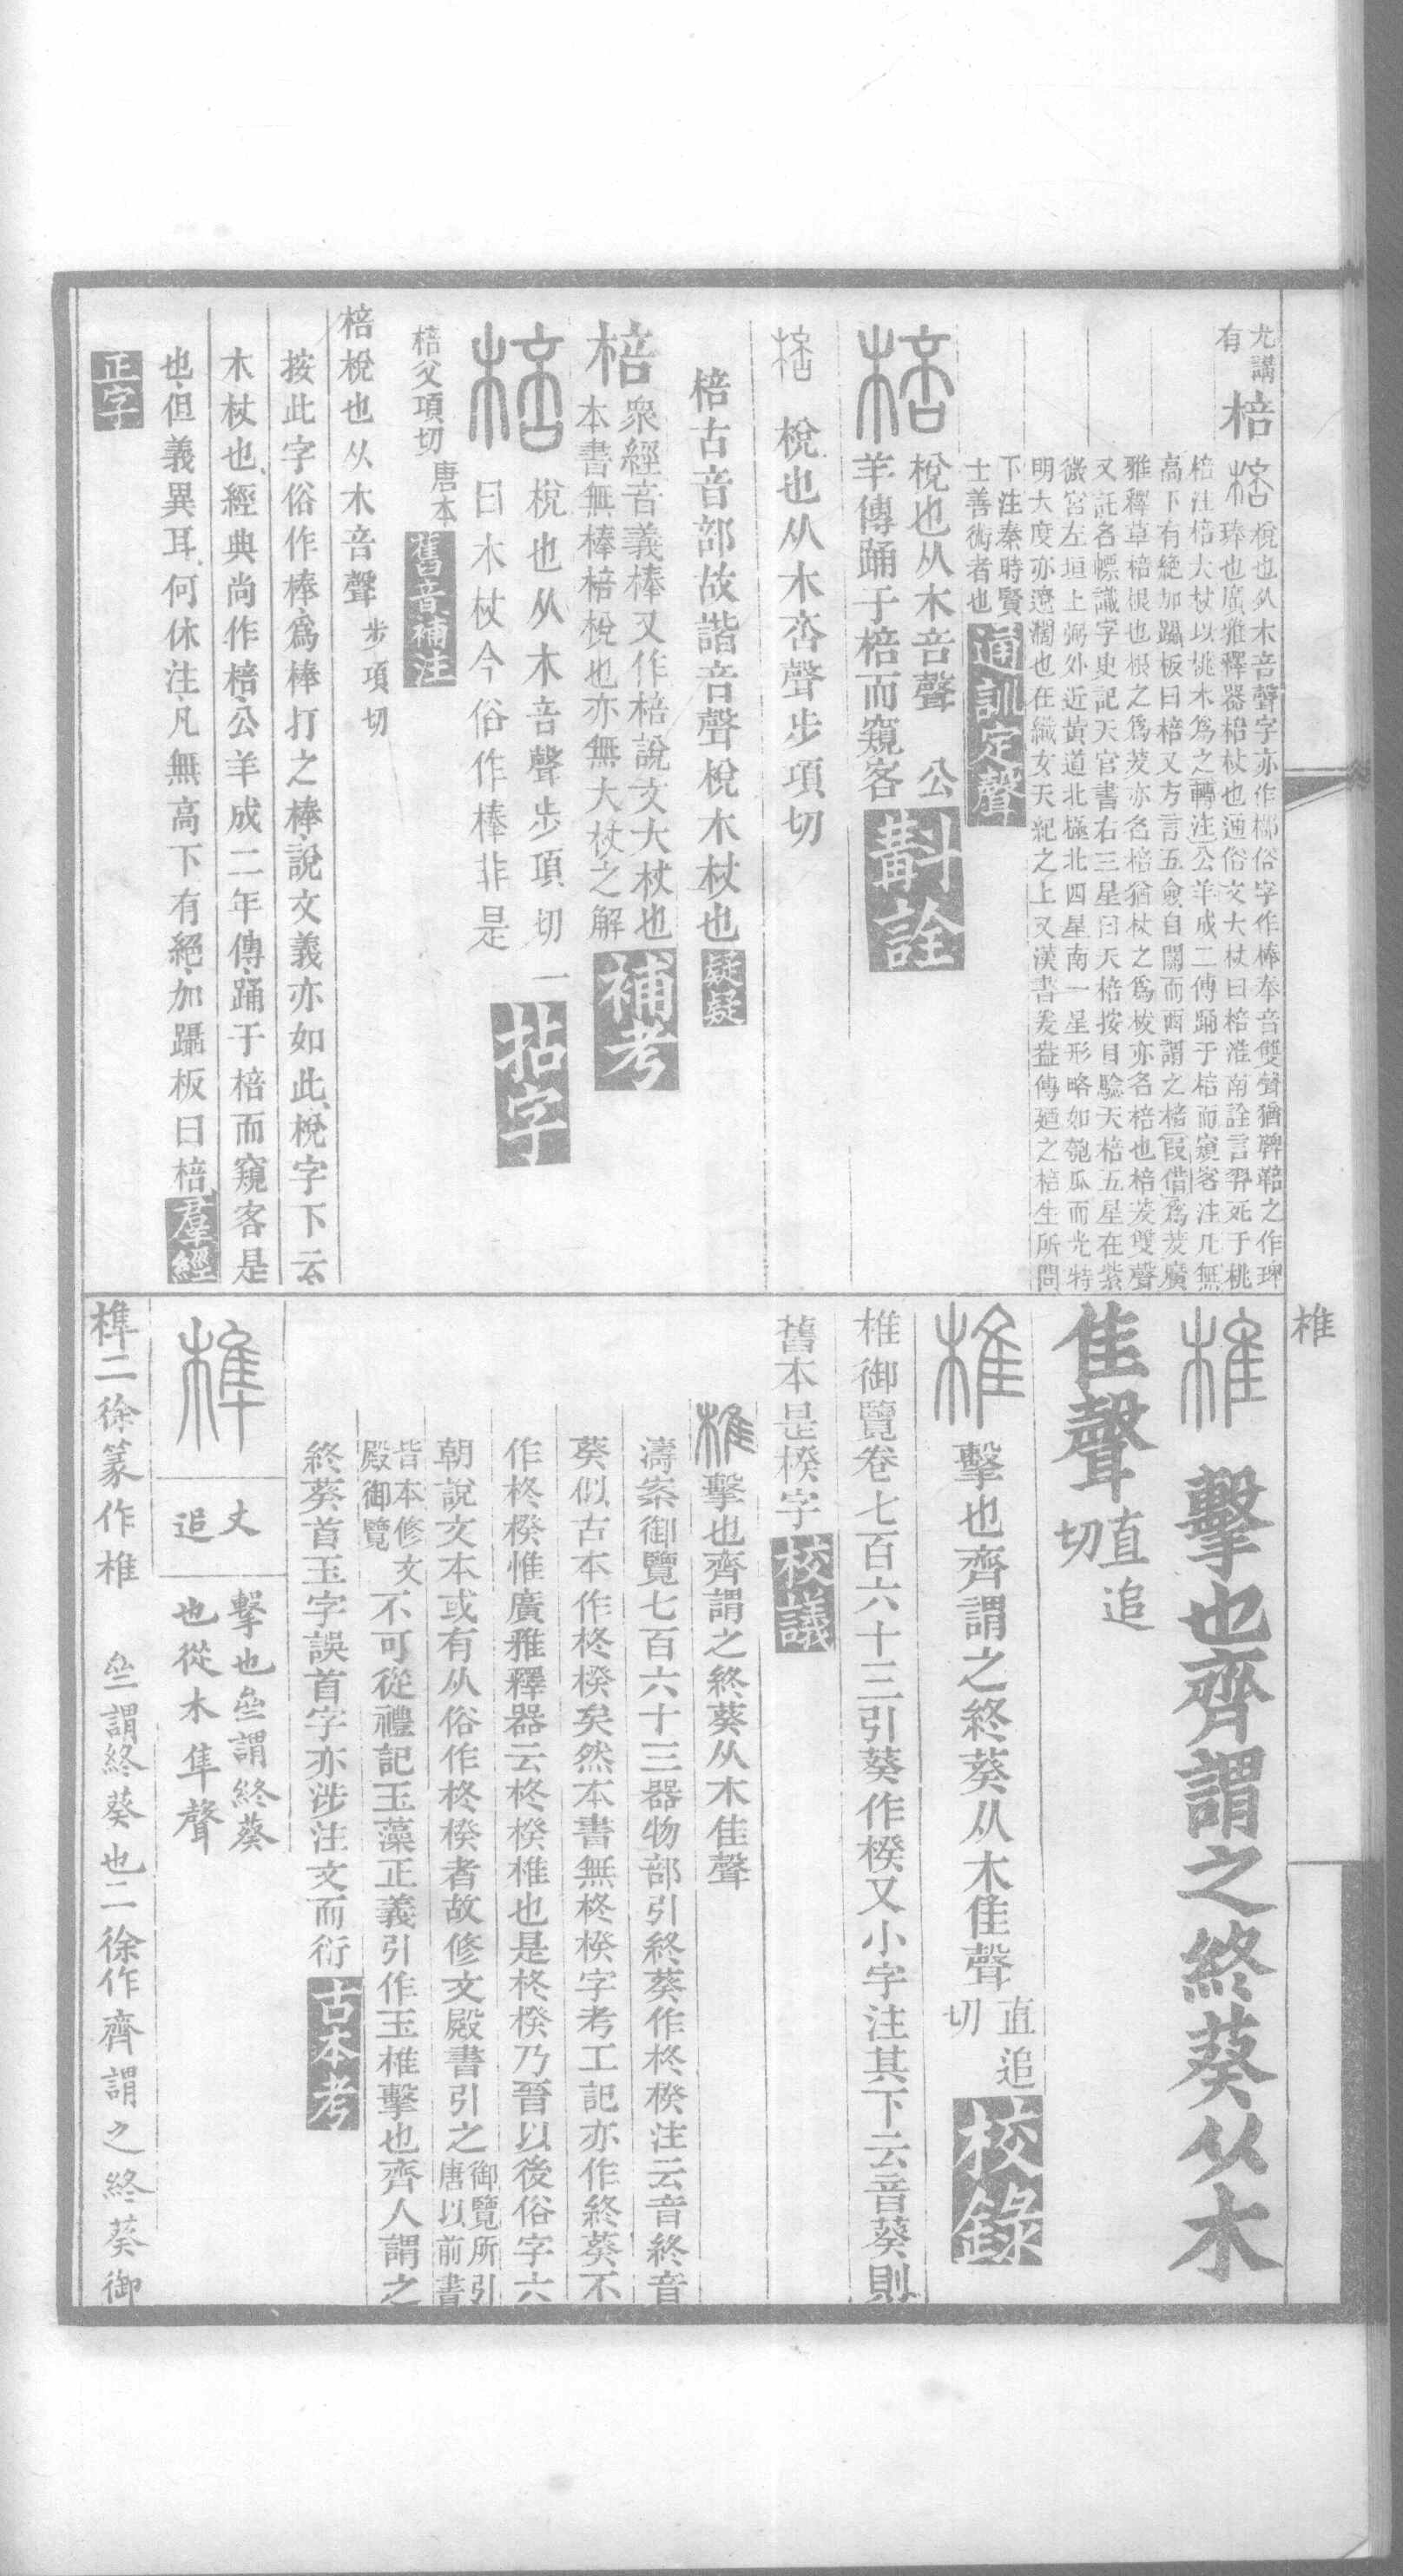 尤講
有
棓
棓
梲也从木咅聲字亦作㯁俗字作棒奉音雙聲猶鞞鞛之作琕
琫也廣雅釋器棓杖也通俗文大杖曰棓淮南詮言羿死于桃
棓注棓大杖以桃木爲之轉注公羊成二傳踊于棓而窺客注凡無
高下有絶加躡板曰棓又方言五僉自關而西謂之棓叚借爲茇廣
雅釋草棓根也根之爲茇亦名棓猶杖之爲柭亦名棓也棓茇雙聲
又託名幖識字史記天官書右三星曰天棓按目驗天棓五星在紫
微宮左垣上弼外近黃道北極北四星南一星形略如匏瓜而光特
明大度亦遼濶也在織女天紀之上又漢書爰盎傳廼之棓生所問
下注秦時賢
士善術者也
通訓定聲
棓
梲也从木咅聲 公
羊傳踊于棓而窺客
斠詮
棓
梲也从木咅聲步項切
棓古音部故諧咅聲梲木杖也
疑疑
棓
衆經音義棒又作棓說文大杖也
本書無棒棓梲也亦無大杖之解
補考
棓
梲也从木咅聲步項切 一
曰木杖今俗作棒非是
拈字
棓父項切
唐本
舊音補注
棓梲也从木咅聲 步項切
按此字俗作棒爲棒打之棒說文義亦如此梲字下云
木杖也經典尚作棓公羊成二年傳踊于棓而窺客是
也但義異耳何休注凡無高下有絶加躡板曰棓
羣經
正字
椎
椎
擊也齊謂之終葵从木
隹聲
直追
切
椎
擊也齊謂之終葵从木隹聲
直追
切
校錄
椎御覽卷七百六十三引葵作楑又小字注其下云音葵則
舊本是楑字
校議
椎擊也齊謂之終葵从木隹聲
濤案御覽七百六十三器物部引終葵作柊楑注云音終音
葵似古本作柊楑矣然本書無柊楑字考工記亦作終葵不
作柊楑惟廣雅釋器云柊楑椎也是柊楑乃晉以後俗字六
朝說文本或有从俗作柊楑者故修文殿書引之
御覽所引
唐以前書
皆本修文
殿御覽
不可從禮記玉藻正義引作玉椎擊也齊人謂之
終葵首玉字誤首字亦涉注文而衍
古本考
榫
丈
追
擊也亝謂終葵
也從木隼聲
榫二徐篆作椎 亝謂終葵也二徐作齊謂之終葵御